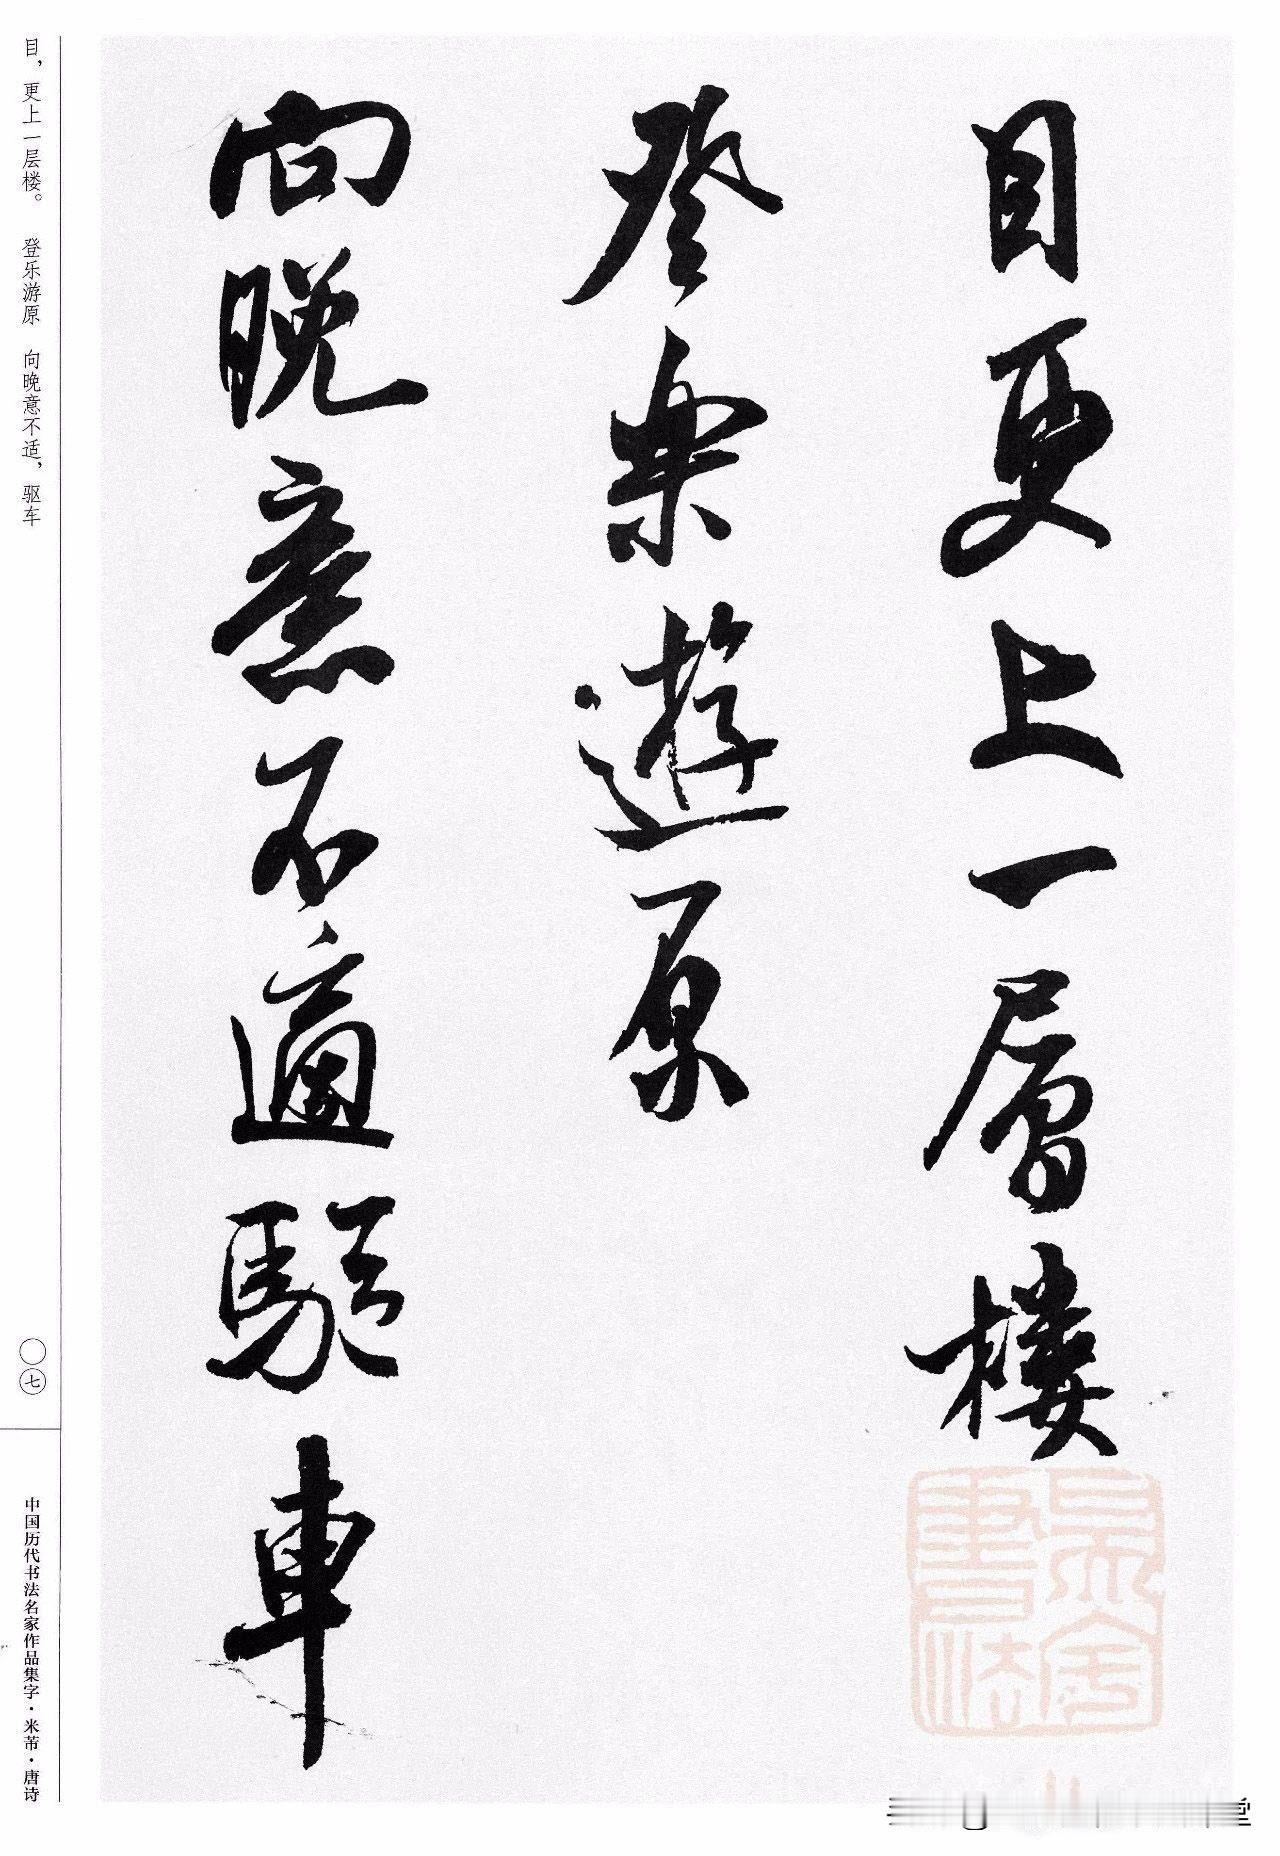 目更上一層樓
登樂遊原
向晚意不適驅車
目，更上一层楼。 登乐游原 向晚意不适，驱车
〇七
中国历代书法名家作品集字·米芾·唐诗